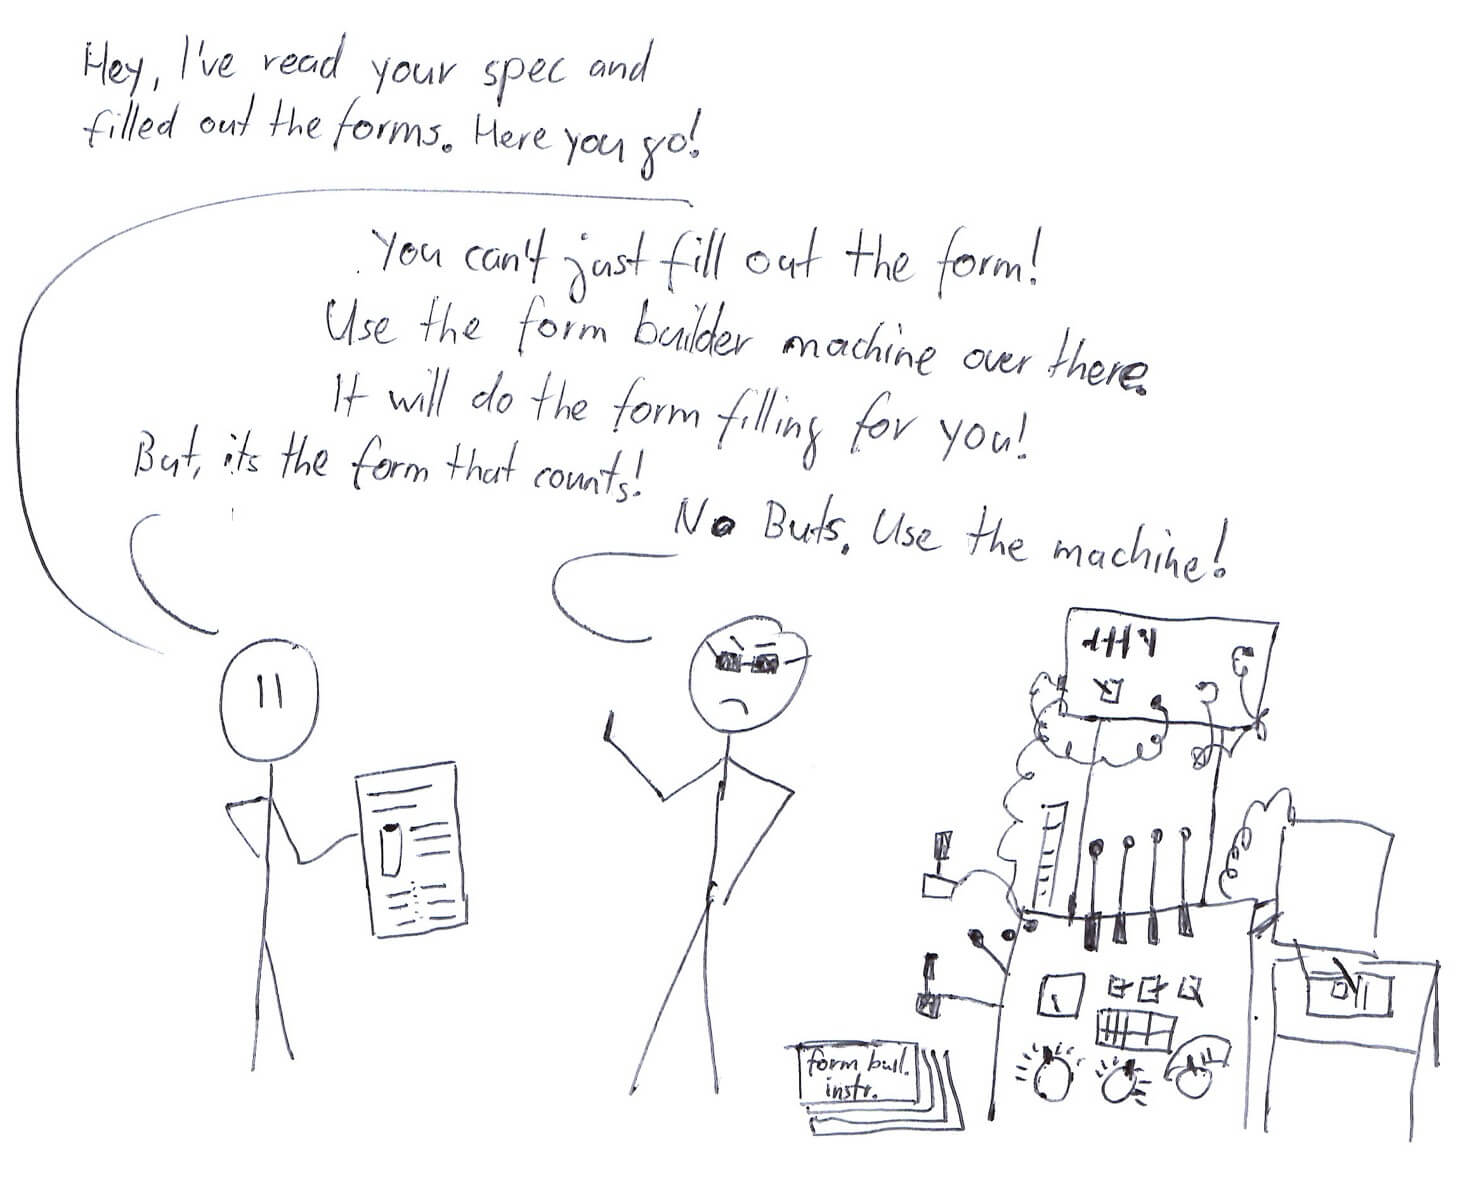 Hey, I've read your spec and
filled out the forms. Here you go!
You can't just fill out the form!
Use the form builder machine over there.
It will do the form filling for you!
But, its the form that counts!
No Buts. Use the machine!
form buil.
instr.